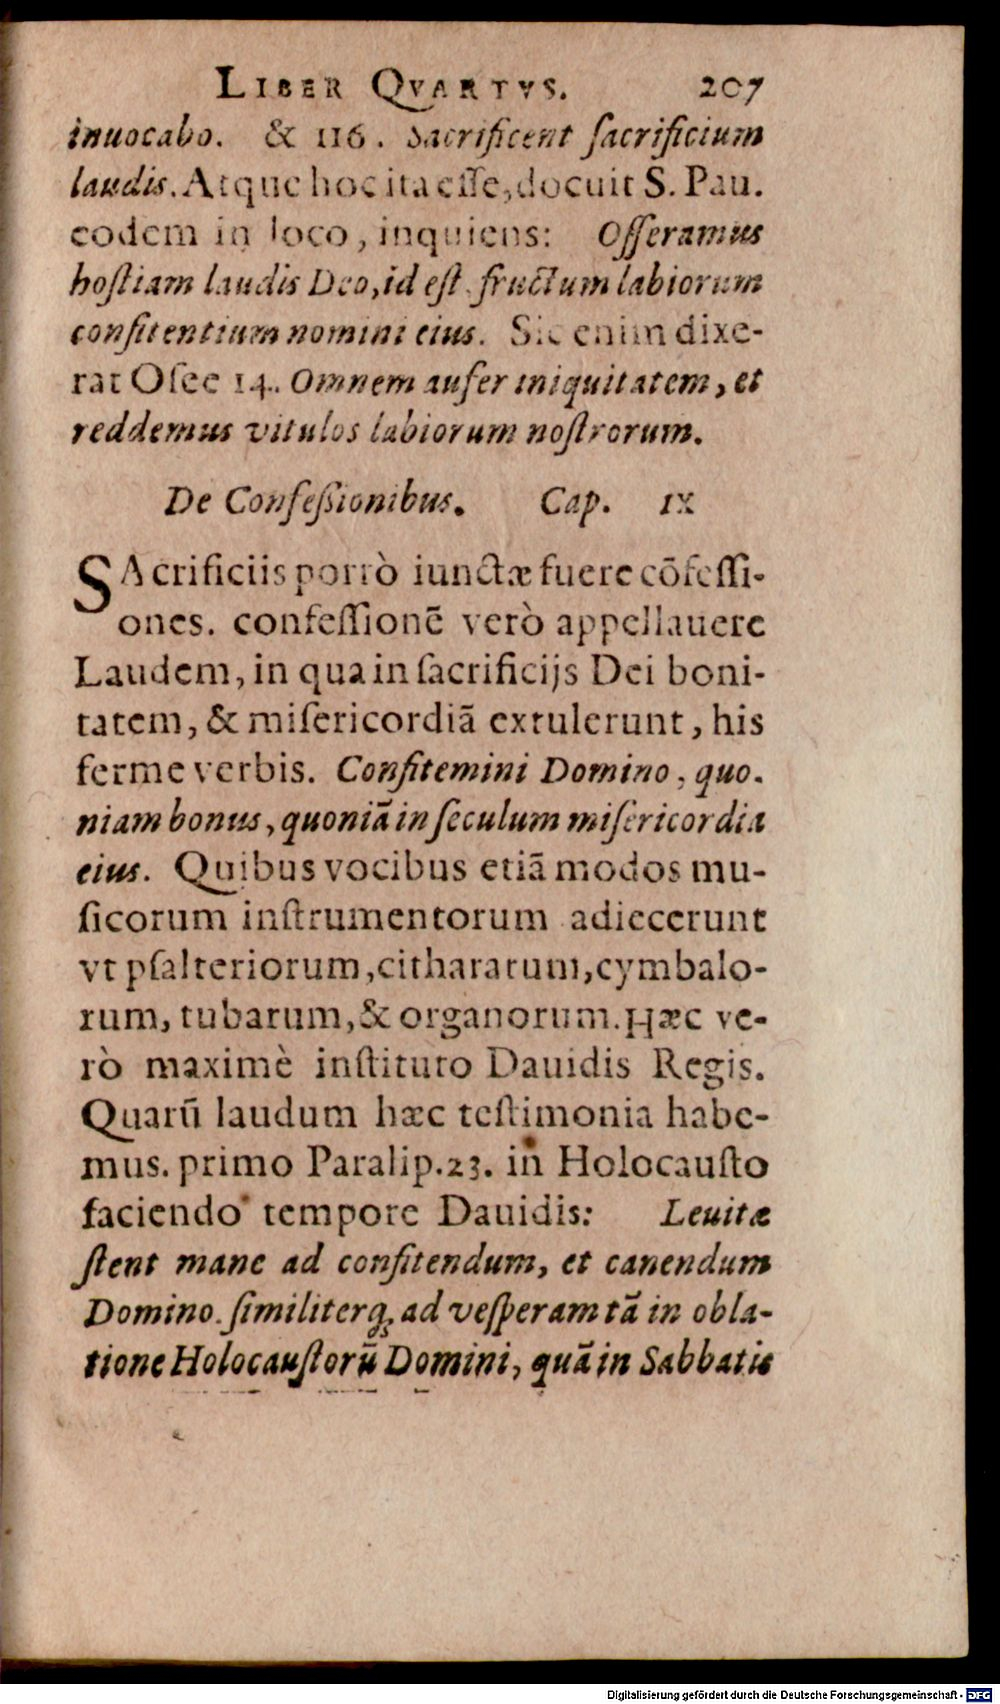 LIBER QVARTVS. 207
inuocabo. & 116. Sacrificent ſacrificium
laudis. Atque hoc ita eſſe, docuit S. Pau.
eodem in loco, inquiens: Offeramus
hoſtiam laudis Deo, id eſt fructum labiorum
confitentium nomini eius. Sic enim dixe-
rat Oſee 14. Omnem aufer iniquitatem, et
reddemus vitulos labiorum noſtrorum.
De Confeſsionibus. Cap. IX
SAcrificiis porrò iunctæ fuere cōfeſſi-
ones. confeſſionē verò appellauere
Laudem, in qua in ſacrificijs Dei boni-
tatem, & miſericordiā extulerunt, his
ferme verbis. Confitemini Domino, quo.
niam bonus, quoniā in ſeculum miſericordia
eius. Quibus vocibus etiā modos mu-
ſicorum inſtrumentorum adiecerunt
vt pſalteriorum, cithararum, cymbalo-
rum, tubarum, & organorum. Hæc ve-
rò maximè inſtituto Dauidis Regis.
Quarū laudum hæc teſtimonia habe-
mus. primo Paralip. 23. in Holocauſto
faciendo tempore Dauidis: Leuitæ
ſtent mane ad confitendum, et canendum
Domino. ſimiliterq; ad veſperam tā in obla-
tione Holocauſtorū Domini, quā in Sabbatis
Digitalisierung gefördert durch die Deutsche Forschungsgemeinschaft - DFG